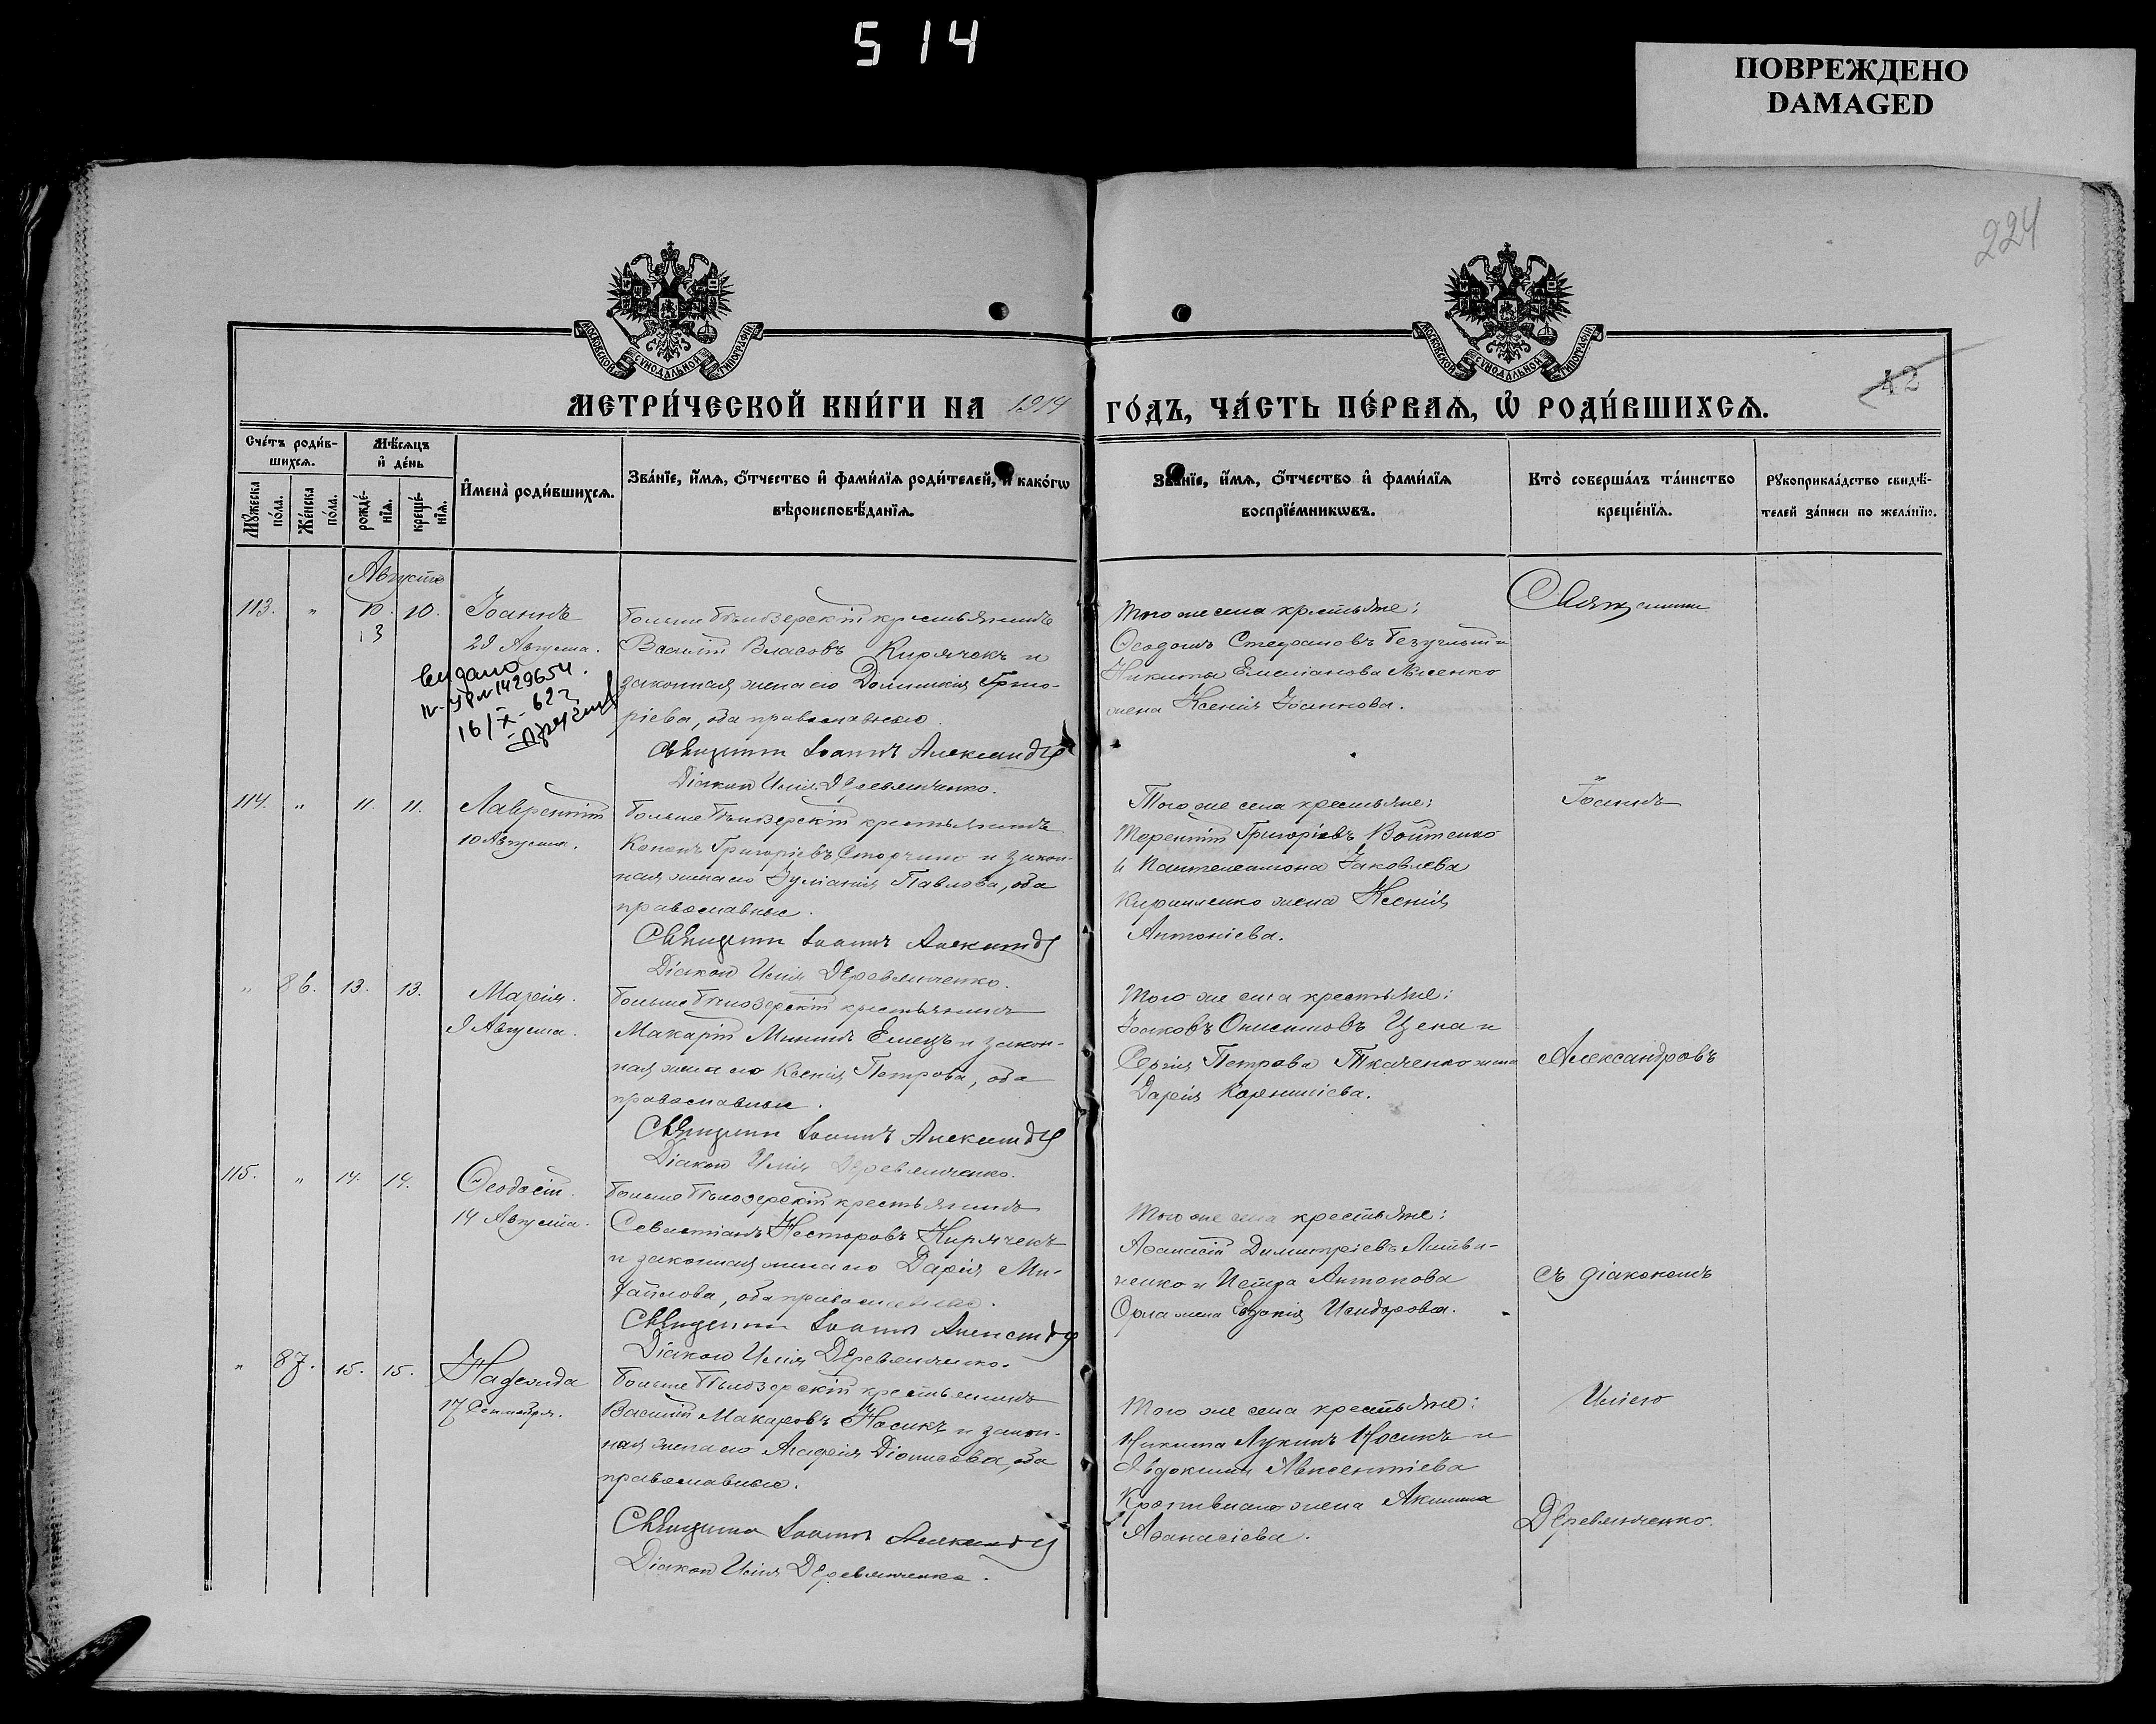 514
ПОВРЕЖДЕНО
DAMAGED
224
МОСКОВСКОЙ СѴНОДАЛЬНОЙ ТИПОГРАФІИ
МОСКОВСКОЙ СѴНОДАЛЬНОЙ ТИПОГРАФІИ
42
МЕТРИ́ЧЕСКОЙ КНИ́ГИ НА 1914 ГО́ДЪ, ЧА́СТЬ ПЕ́РВАЯ, Ѡ РОДИ́ВШИХСЯ.
Сче́тъ роди́в-
шихся.
Мѣ́сяцъ
и де́нь
Му́жеска по́ла.
Же́нска по́ла.
рожде́-
нїя.
креще́-
нїя.
Имена̀ роди́вшихся.
Зва́нїе, и́мя, о́тчество и фами́лїя роди́телей, и како́гѡ
вѣроисповѣ́данїя.
Зва́нїе, и́мя, о́тчество и фами́лїя
воспрїе́мникѡвъ.
Кто̀ соверша́лъ та́инство
креще́нїя.
Рꙋкоприкла́дство свидѣ́-
телей за́писи по жела́нїю.
Августъ
113. " 10. 10. Іоаннъ
13
29 Августа.
видано
№ 1429654
16/X-62г
Больше Бѣлозерскій крестьянинъ
Василій Власовъ Кирячокъ и
законная жена его Домникія Григо-
ріева, оба православные.
Священникъ Іоаннъ Александровъ
Діаконъ Илія Деревянченко.
Того же села крестьяне:
Ѳеодотъ Стефановъ и
Никиты Емеліанова Лисенко
жена Ксенія Іоаннова.
Священникъ
114. " 11. 11. Лаврентій
10 Августа.
Больше Бѣлозерскій крестьянинъ
Кононъ Григоріевъ и закон-
ная жена его Іуліанія Павлова, оба
православные.
Священникъ Іоаннъ Александровъ
Діаконъ Илія Деревянченко.
Того же села крестьяне:
Терентій Григоріевъ Войтенко
и Пантелеимона Іаковлева
Кириленко жена Ксенія
Антоніева.
Іоаннъ
" 86. 13. 13. Марія.
9 Августа.
Больше Бѣлозерскій крестьянинъ
Макарій Мининъ Емецъ и закон-
ная жена его Ксенія Петрова, оба
православные.
Священникъ Іоаннъ Александровъ
Діаконъ Илія Деревянченко.
Того же села крестьяне:
Іаковъ Онисимовъ Цепа и
Сергія Петрова Ткаченко жена
Дарія Корниліева.
Александровъ
115. " 14. 14. Ѳеодосій.
14 Августа.
Больше Бѣлозерскій крестьянинъ
Севастіанъ Несторовъ Кирячекъ
и законная жена его Дарія Ми-
хайлова, оба православные.
Священникъ Іоаннъ Александровъ
Діаконъ Илія Деревянченко.
Того же села крестьяне:
Аѳанасій Димитріевъ Литви-
ненко и Петра Антонова
Орла жена Евдокія Исидорова.
съ діакономъ
" 87. 15. 15. Надежда
17 Сентября.
Больше Бѣлозерскій крестьянинъ
Василій Макаровъ Носикъ и закон-
ная жена его Агафія Діонисова, оба
православные.
Священникъ Іоаннъ Александровъ
Діаконъ Илія Деревянченко.
Того же села крестьяне:
Никита Лукинъ Носикъ и
Евдокима Авксентіева
жена Акилина
Аѳанасіева.
Иліею
Деревянченко.